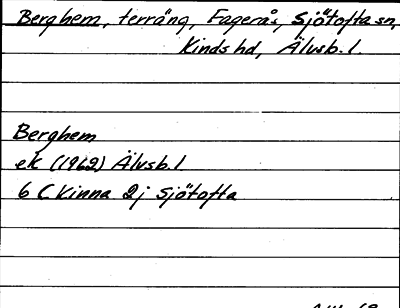 Berghem, terräng, Fagerås, Sjötofta sn,
Kinds hd, Älvsb. l.
Berghem
ek (1962) Älvsb. l
6 C Kinna 2j Sjötofta